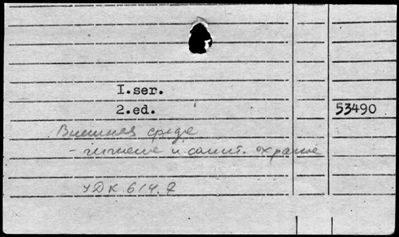 I.ser.
2.ed.
53490
Внешняя среда
- гигиена и санит. охрана
УДК 614.7